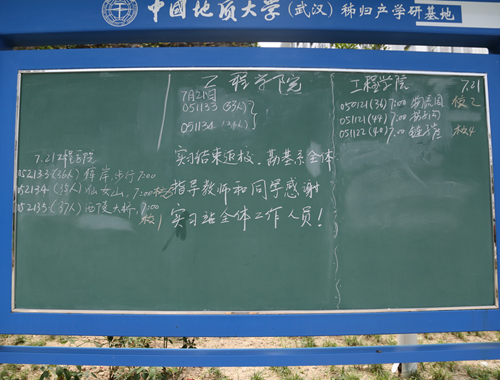 中国地质大学(武汉)秭归产学研基地
7.21工程学院
052133(36人)
052134(35人)仙女山,7:00
052135(37人)西陵大桥,7:00
工程学院
7月21日
051133(33人)
051134(33人)
实习结束返校,勘基系全体
指导教师和同学感谢
实习站全体工作人员!
工程学院 7.21
050121(36)7:00
051121(44)7:00
051122(40)7:00